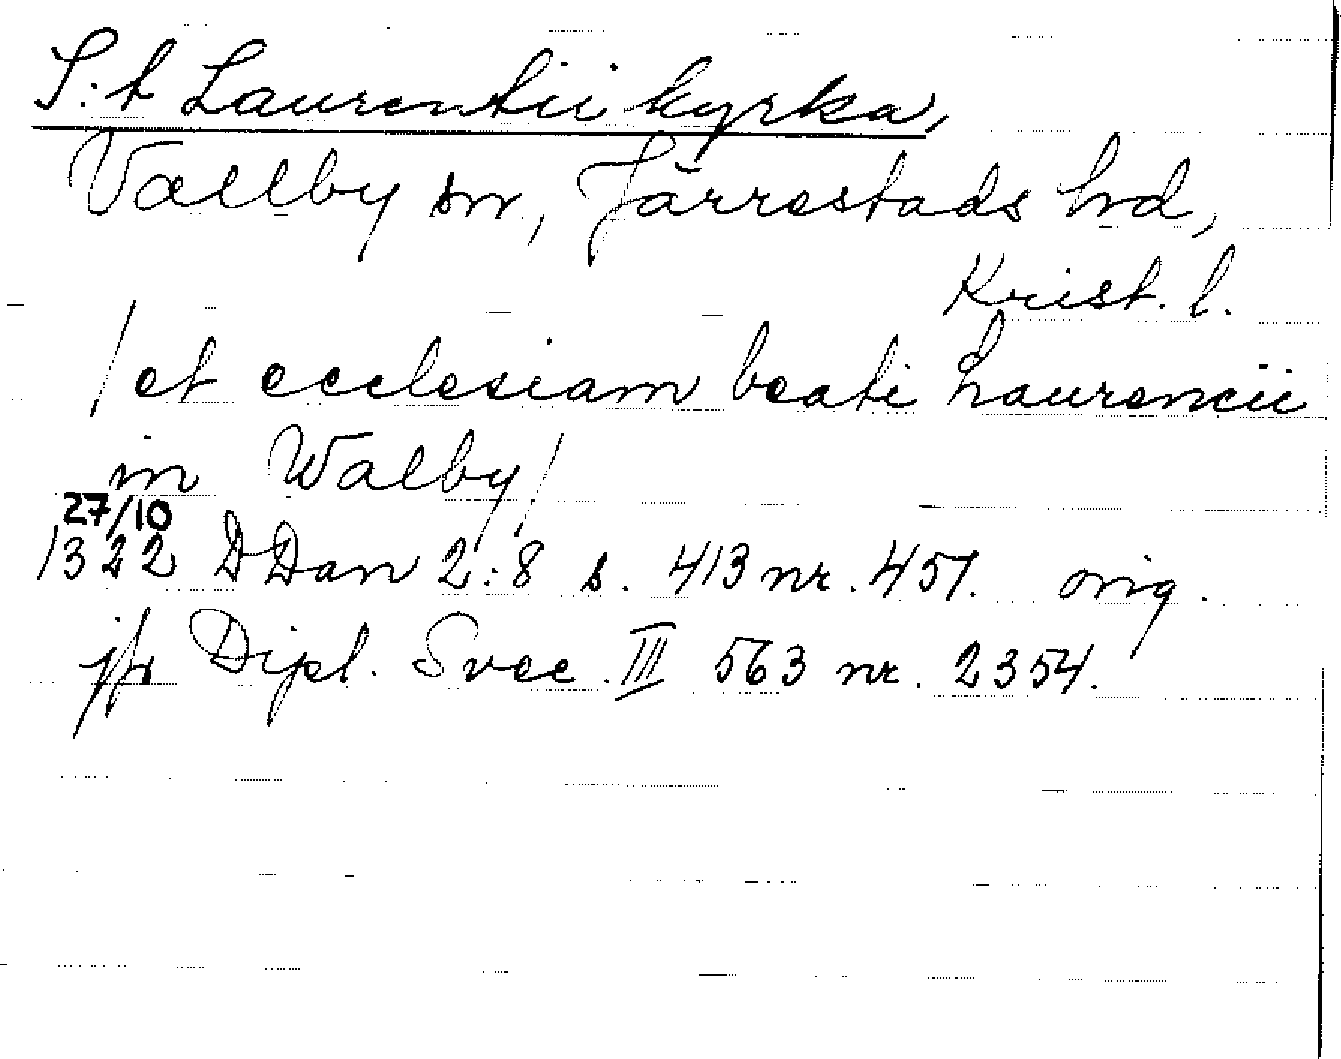 S:t Laurentii kyrka,
Vallby sn, Järrestads hd,
Krist. l.
/et ecclesiam beati Laurencii
in Walby/
27/10
1322 DDan 2:8 s. 413 nr. 457. orig.
jfr Dipl. Svec. III 563 nr. 2354.